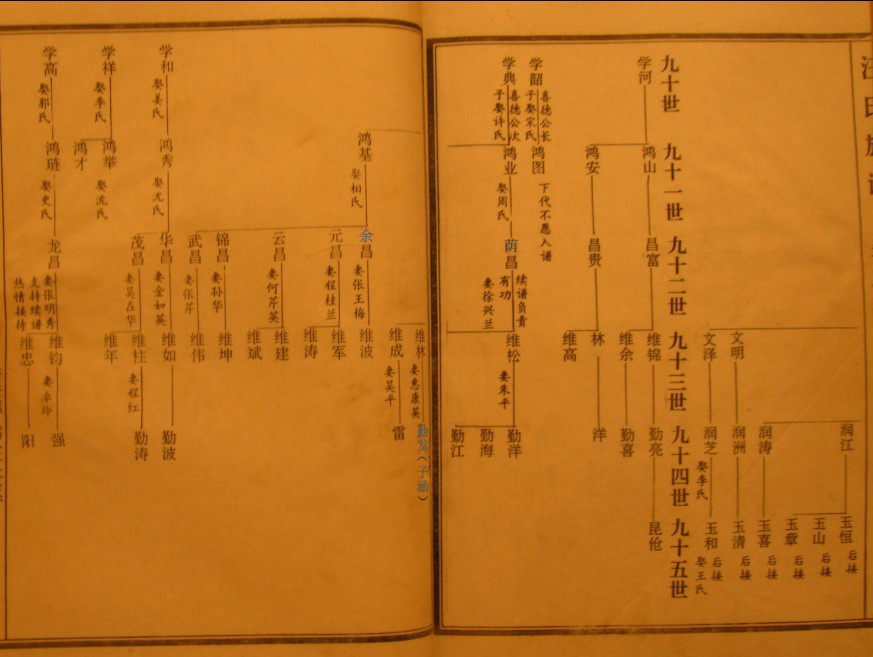 汪氏族谱
九十世 九十一世 九十二世 九十三世 九十四世 九十五世
润江
玉恒 后接
玉山 后接
玉章 后接
润涛
玉喜 后接
文明
润洲
玉清 后接
文泽
润芝 娶李氏
玉和 后接 娶王氏
学河
鸿山
昌富
维锦
勤亮
昆伧
维余
勤喜
鸿安
昌贵
林
洋
维高
学韶 喜德公长子 娶宋氏
鸿图
下代不愿入谱
学典 喜德公次子 娶许氏
鸿业 娶周氏
荫昌 续谱负责有功 妻徐兴兰
维松 妻朱平
勤洋
勤海
勤江
维林 妻惠康英
勤发（子涵）
维成 妻吴平
雷
鸿基 娶相氏
余昌 妻张王梅
维波
元昌 妻程桂兰
维军
维涛
云昌 妻何芹英
维建
维斌
锦昌 妻孙华
维坤
武昌 妻张芹
维伟
学和 娶姜氏
鸿秀 娶沈氏
华昌 妻金如英
维如
勤波
茂昌 妻吴在华
维柱 妻程红
勤涛
维年
学祥 娶季氏
鸿举 娶沈氏
鸿才
学高 娶郭氏
鸿琏 娶史氏
龙昌 妻张明秀 支持续谱 热情接待
维钧
强
维忠
阳